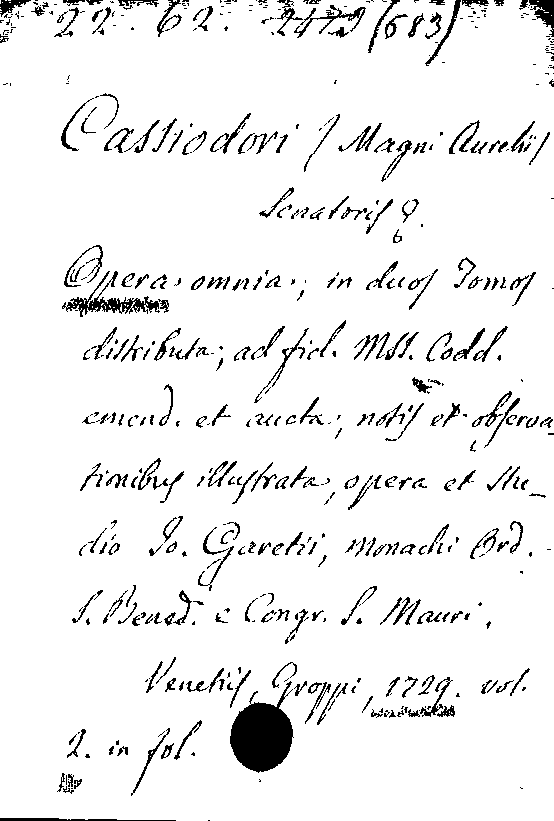 22. 62. 2479 (683)
Cassiodori / Magni Aurelii /
Senatoris
Opera omnia, in duos Tomos
distributa; ad fid. Mss. Codd.
emend. et aucta, notis et observa
tionibus illustrata, opera et Stu_
dio Jo. Garetii, Monachi Ord.
S. Bened. e Congr. S. Mauri.
Venetiis, Groppi, 1729. vol.
2. in fol.